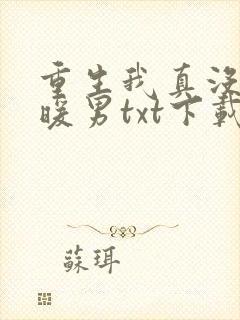 重生我真没
暖男txt下载
苏珥